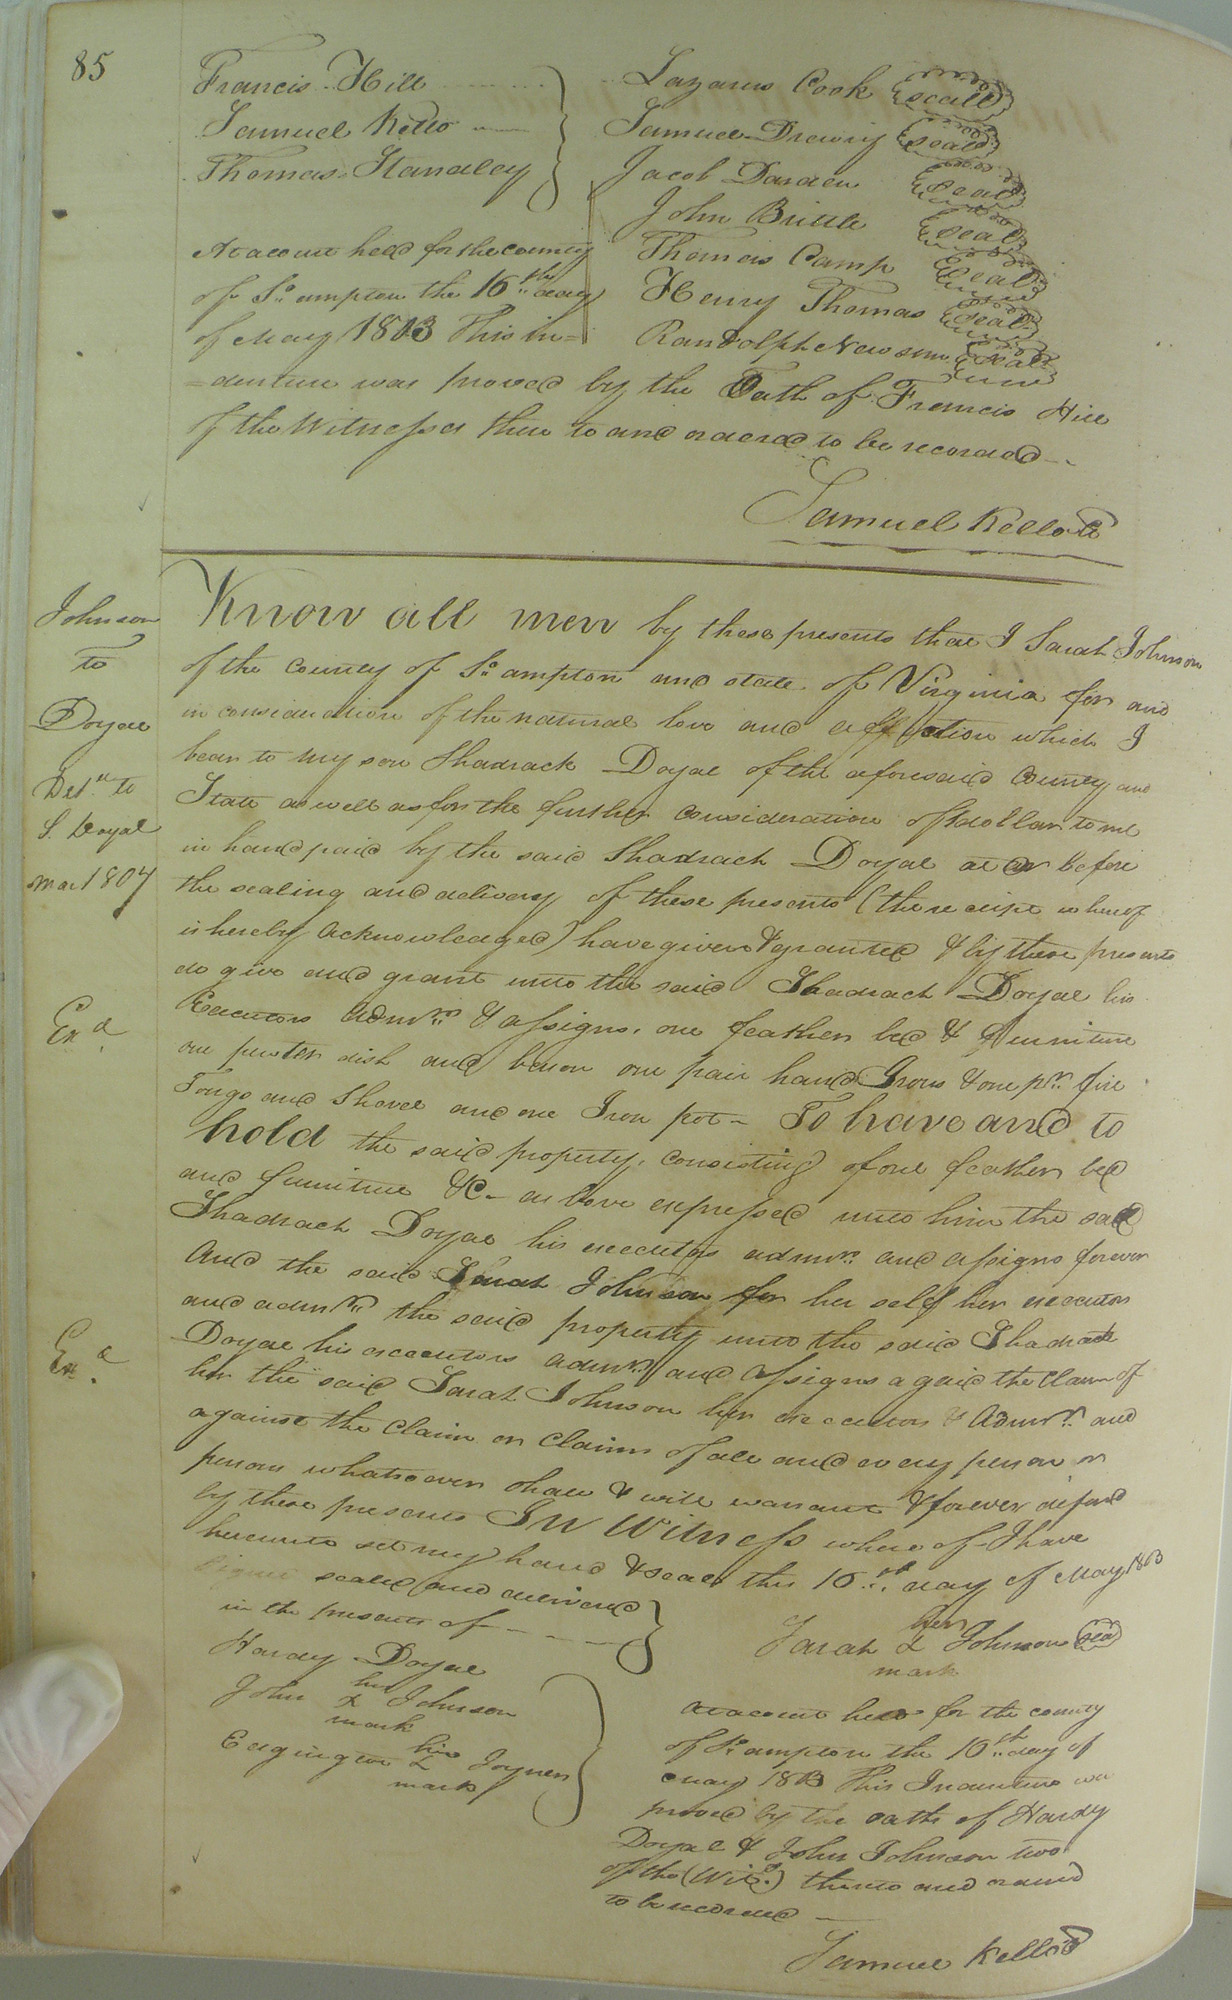 85
Francis Hill
Samuel Kello
Thomas Standley
Lazarus Cook seall
Samuel Drewry seal
Jacob Darden Seal
John Brittle Seal
Thomas Camp Seal
Henry Thomas Seal
Randolph Newsum Seal
At a court held for the county
of So. ampton the 16th. day
of May 1803 This in=
=denture was proved by the Oath of Francis Hill
of the Witnesses there to and ordered to be recorded
Samuel Kello
Johnson
to
Doyal
Del.d to
S. Doyal
Mar 1807
Know all men by these presents that I Sarah Johnson
of the county of So. ampton and state of Virginia for and
in consideration of the natural love and affection which I
bear to my son Shadrack Doyal of the aforesaid County and
State as well as for the further consideration of 1 dollar to me
in hand paid by the said Shadrach Doyal at or before
the sealing and delivery of these presents (the receipt whereof
is hereby Acknowledged) have given & granted & by these presents
do give and grant unto the said Shadrach Doyal his
Exd.
Executors Admrs. & assigns, one feather bed & furniture
one pewter dish and bason one pair hand Irons & one pr. fire
Tongs and Shovel and one Iron pot - To have and to
hold the said property, consisting of one feather bed
and furniture &C - as above expressed unto him the said
Shadrach Doyal his executors admrs. and assigns forever
And the said Sarah Johnson for her self her executors
and admrs. the said property unto the said Shadrach
Exd.
Doyal his executors admrs. and assigns againd the claim of
her the said Sarah Johnson her executors & Admrs. and
against the Claim or Claims of all and every person or
persons whatsoever shall & will warrant & forever defend
by these presents In Witness where of I have
hereunto set my hand & seal this 16th. day of May 1803
Signd sealed and delivered
in the presents of
Hardy Doyal
John his x mark Johnson
his x mark Joyner
Sarah her x mark Johnson seal
At a court held for the county
of So. ampton the 16th. day of
May 1803 This Indenture was
proved by the oaths of Hardy
Doyal & John Johnson two
of the (Wits.) thereto and ordered
to be recorded
Samuel Kello